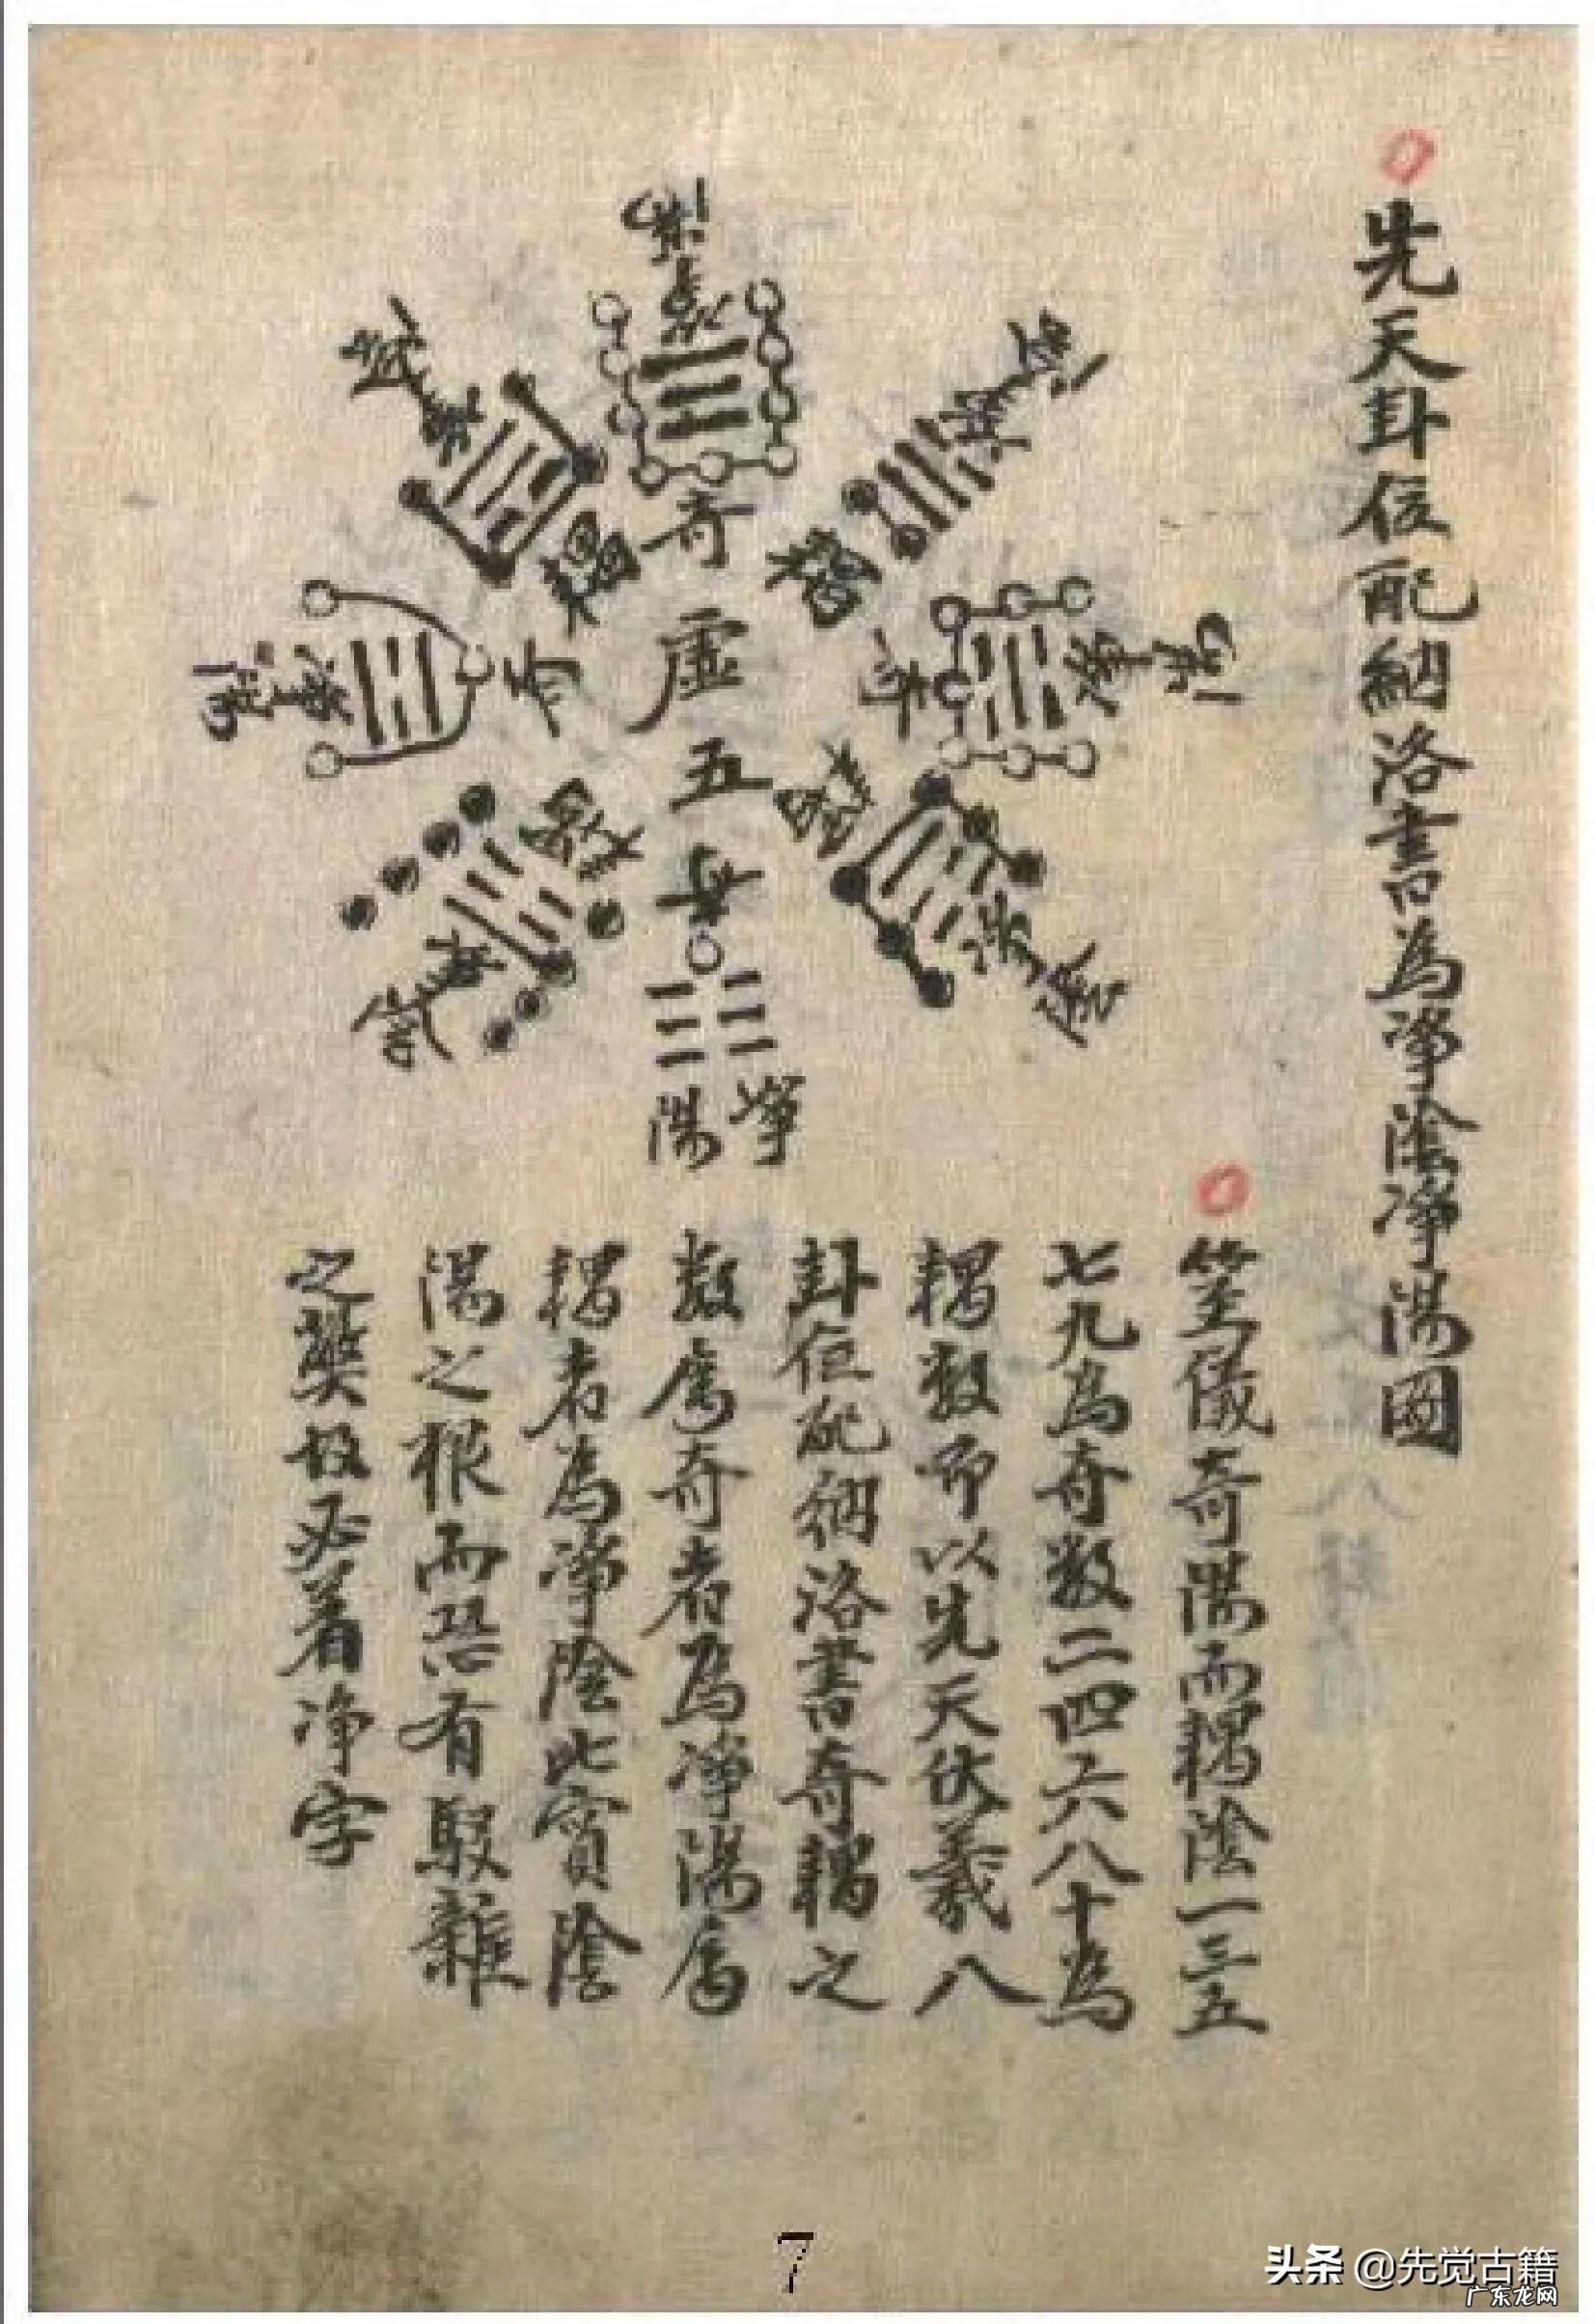 先天卦位配納洛書為凈陰凈陽圖
奇
耦
耦
奇
奇
虛
五
奇
凈
陽
䇄儀奇陽而耦陰一三五
七九為奇數二四六八十為
耦數即以先天伏羲八
卦位配納洛書奇耦之
數屬奇者為凈陽屬
耦者為凈陰此實陰
陽之根而恐有駁雜
之獘故必着凈字
7
头条 @先觉古籍
广东龙网